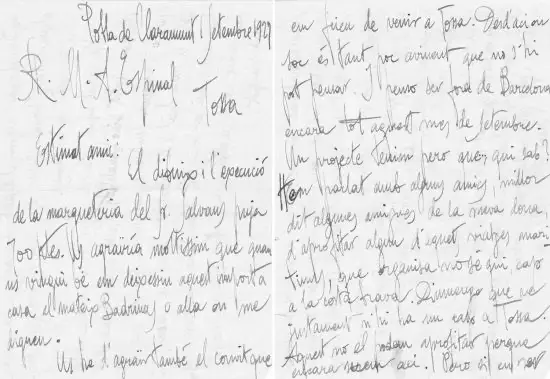 Pobla de Claramunt 1 Setembre 1929
R. M. A. Espinal
Tossa
Estimat amic:
El disseny i l'execució
de la marqueteria del Sr. puja
700 ptes. Us agrairia moltissim que quan
us vingui bé em deixessiu aquest import a
casa el mateix Badrinas o alla on me
diguen.
Us he d'agrair també el convit que
em feieu de venir a Tossa. Desd'aci on
soc és tant poc avinent que no s'hi
pot pensar. I penso ser fora de Barcelona
encara tot aquest mes de setembre.
Un projecte tenim pero aneu qui sab?
Hem parlat amb alguns amics millor
dit algunes amigues de la meva dona,
d'aprofitar algun d'aquets viatges mari-
tims, que organisa no se qui, cap
a la costa brava. Diumenge que ve
justament n'hi ha un cap a Tossa.
Aquest no el podem aprofitar perque
encara serem aci. Pero si en